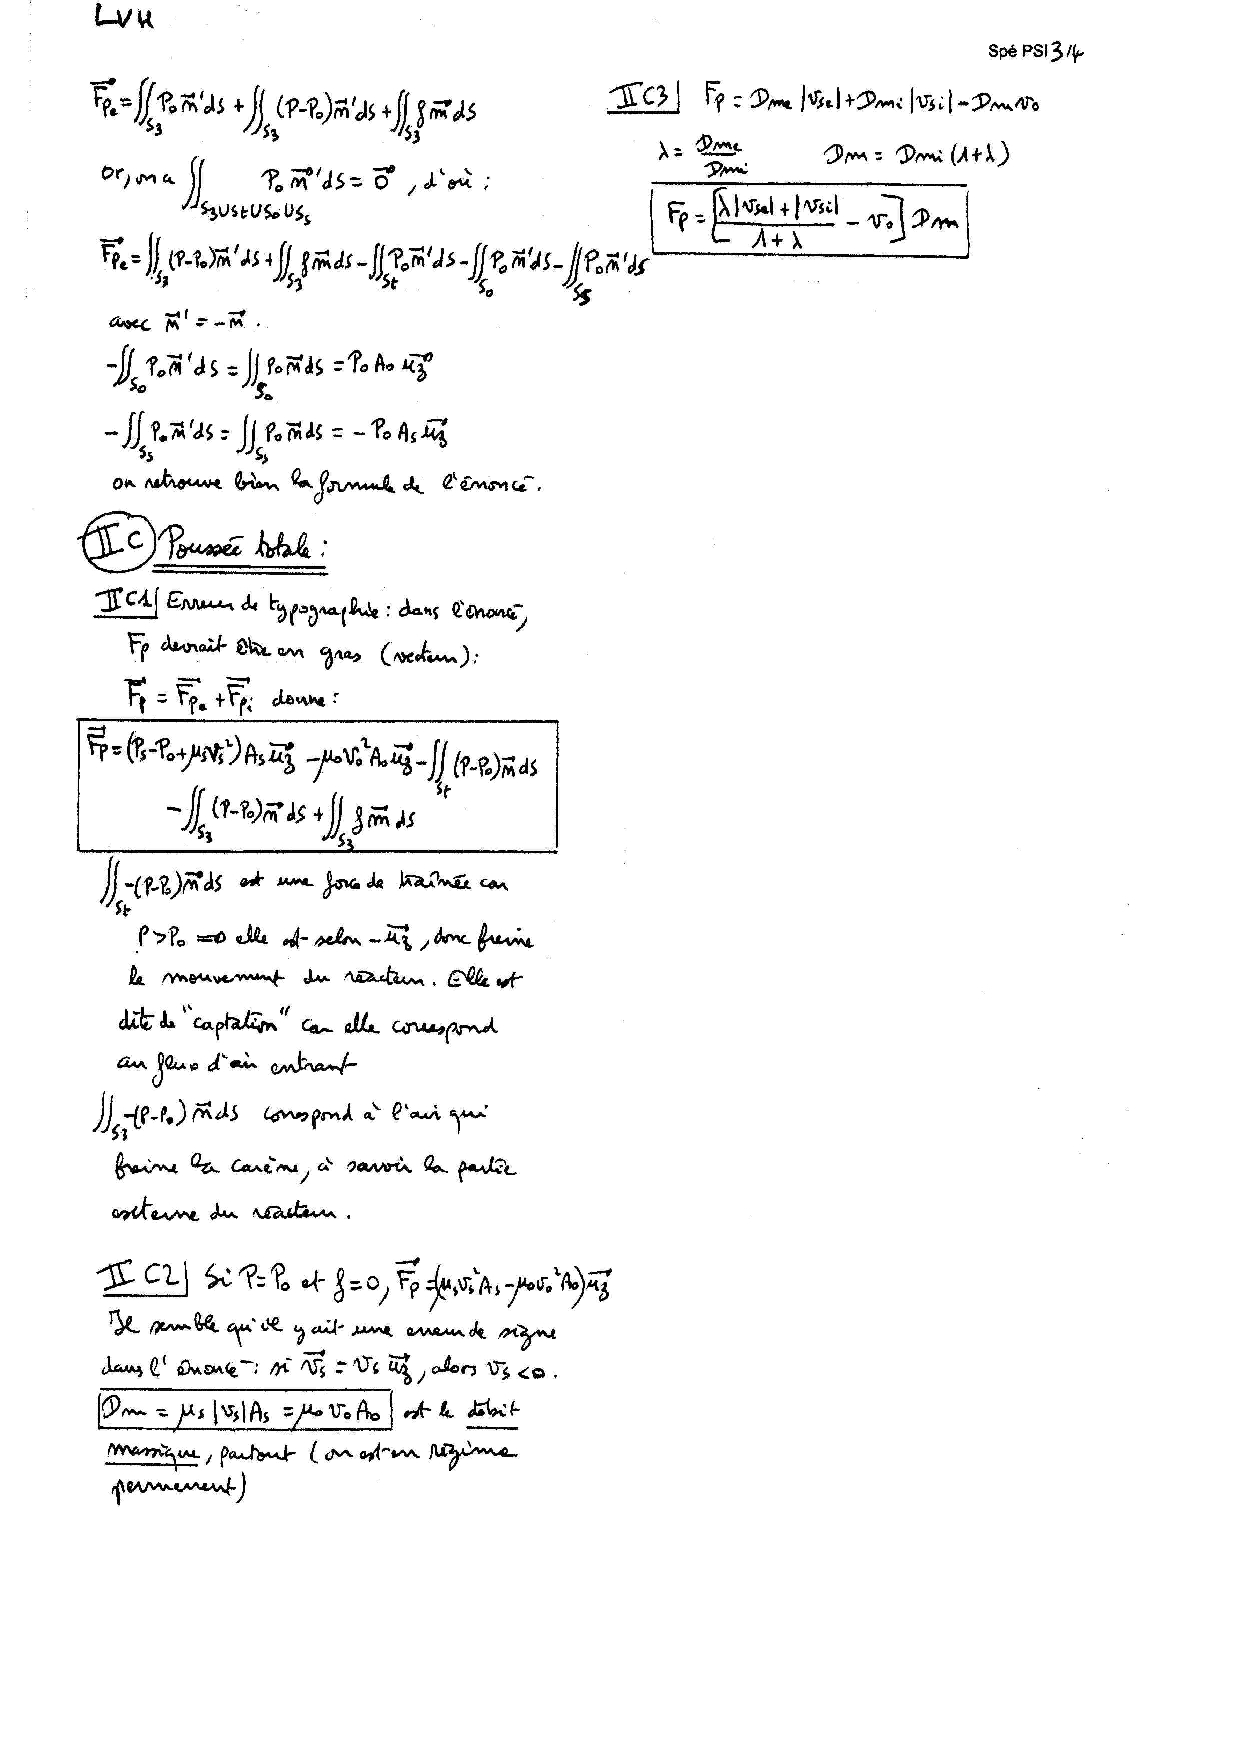 LVH
Spé PSI 3/4
F⃗pe = ∬_S3 P₀ n⃗' dS + ∬_S3 (P-P₀) n⃗' dS + ∬_S3 f m⃗ dS
Or, on a ∬_S3∪St∪S₀∪Ss P₀ n⃗' dS = 0⃗, d'où :
F⃗pe = ∬_S3 (P-P₀) n⃗' dS + ∬_S3 f m⃗ dS - ∬_St P₀ n⃗' dS - ∬_S₀ P₀ n⃗' dS - ∬_Ss P₀ n⃗' dS
avec n⃗' = -n⃗ .
-∬_S₀ P₀ n⃗' dS = ∬_S₀ P₀ n⃗ dS = P₀ A₀ u⃗z
-∬_Ss P₀ n⃗' dS = ∬_Ss P₀ n⃗ dS = - P₀ As u⃗z
on retrouve bien la formule de l'énoncé.
II C Poussée totale :
II C1| Erreur de typographie : dans l'énoncé,
Fp devrait être en gras (vecteur) :
F⃗p = F⃗pe + F⃗pi donne :
F⃗p = (Ps-P₀+μsvs²) As u⃗z - μ₀v₀²A₀ u⃗z - ∬_St (P-P₀) n⃗ dS
- ∬_S3 (P-P₀) n⃗ dS + ∬_S3 f m⃗ dS
∬_St -(P-P₀) n⃗ dS est une force de traînée car
P>P₀ => elle est selon -u⃗z, donc freine
le mouvement du réacteur. Elle est
dite de "captation" car elle correspond
au flux d'air entrant
∬_S3 -(P-P₀) n⃗ dS correspond à l'air qui
freine la carène, à savoir la partie
externe du réacteur.
II C2| Si P=P₀ et f=0, F⃗p = (μsvs²As - μ₀v₀²A₀) u⃗z
Il semble qu'il y ait une erreur de signe
dans l'énoncé : si v⃗s = vs u⃗z, alors vs<0.
Dm = μs |vs| As = μ₀ v₀ A₀ est le débit
massique, partout (on est en régime
permenent)
II C3| Fp = Dme |vse| + Dmi |vsi| - Dm v₀
λ = Dme/Dmi Dm = Dmi (1+λ)
Fp = [ (λ|vse| + |vsi|)/(1+λ) - v₀ ] Dm